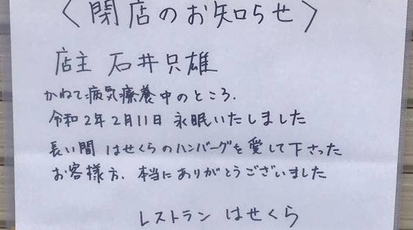 〈閉店のお知らせ〉
店主 石井只雄
かねて病気療養中のところ、
令和2年2月11日 永眠いたしました
長い間 はせくらのハンバーグを愛して下さった
お客様方、本当にありがとうございました
レストラン はせくら